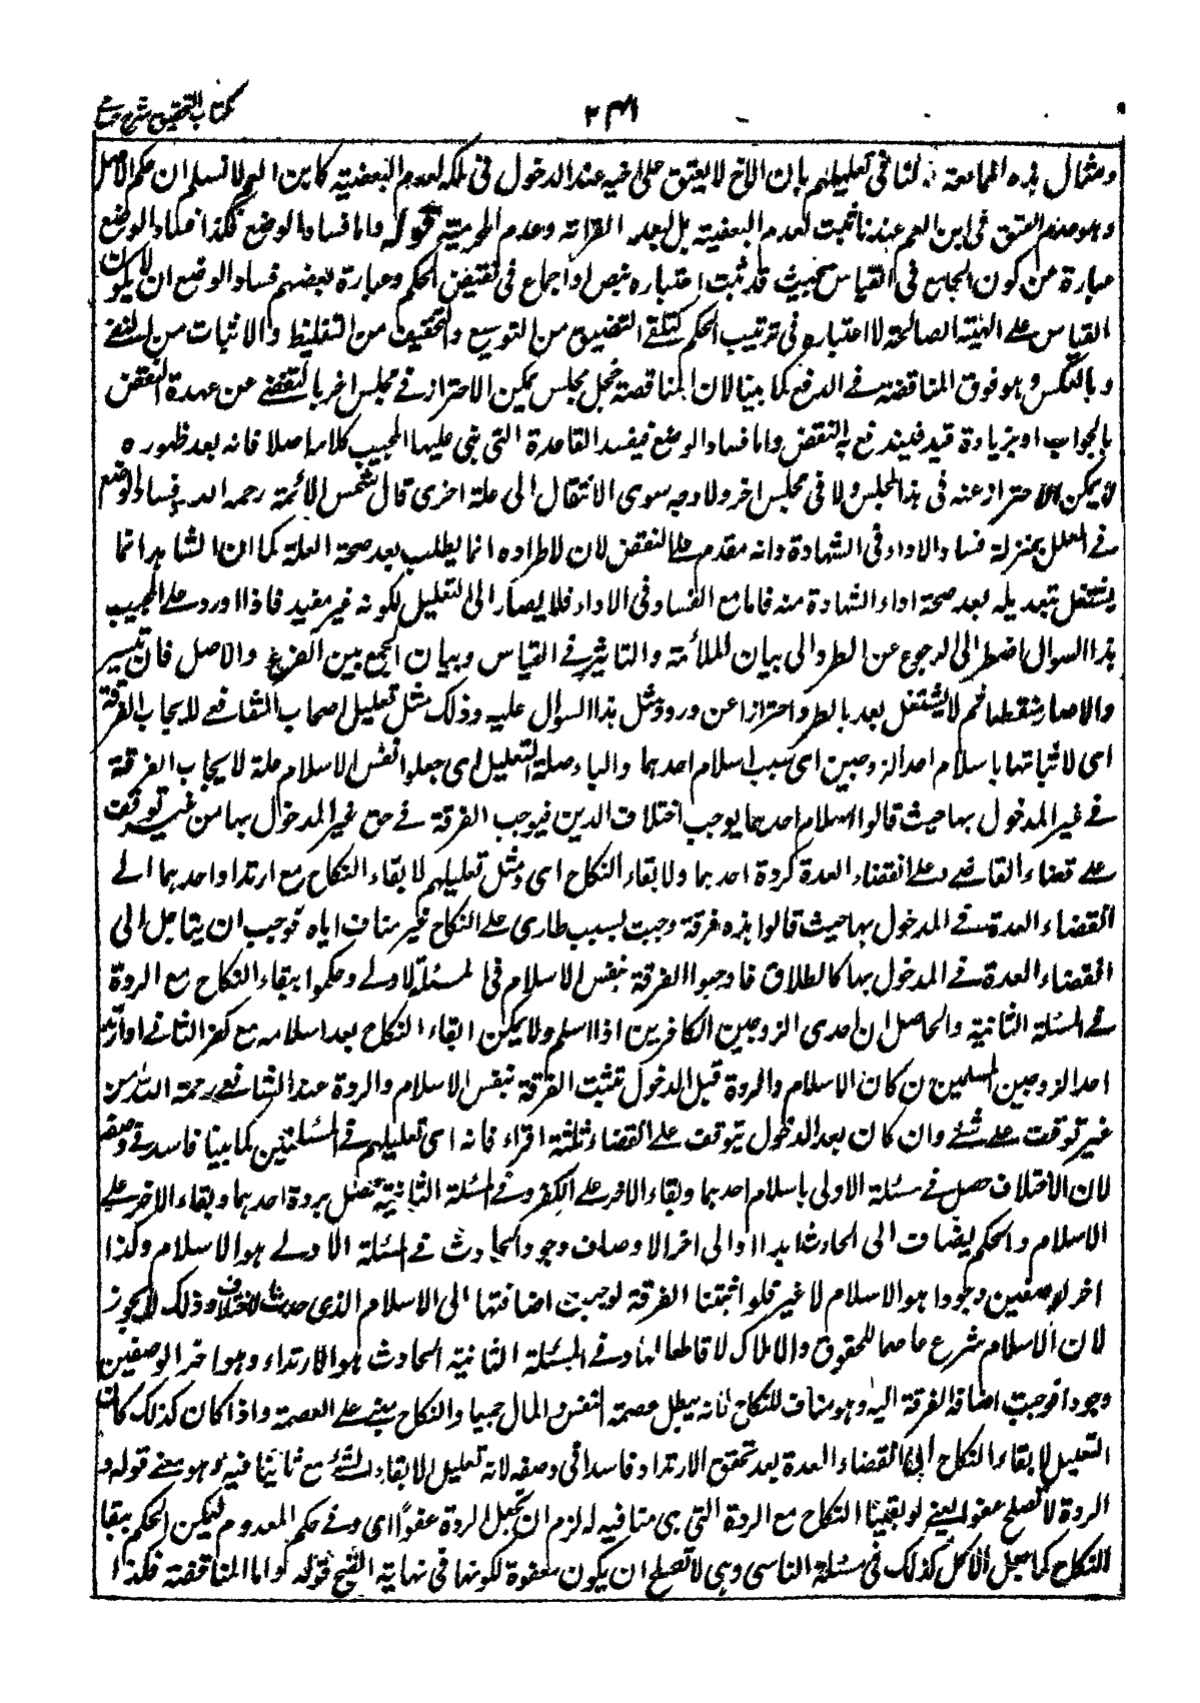 كتاب التحقيق شرح حسامي
ومثال هذه الممانعة لنا فى تعليلهم بان الاخ لا يعتق على اخيه عند الدخول فى ملكه لعدم البعضية كابن العم لا نسلم ان حكم الاصل
وهو عدم العتق فى ابن العم عندنا ثبت لعدم البعضية بل لبعد القرابة وعدم المحرمية قوله واما فساد الوضع فكذا فساد الوضع
عبارة من كون الجامع فى القياس بحيث قد ثبت اعتباره بنص او اجماع فى نقيض الحكم وعبارة بعضهم فساد الوضع ان لا يكون
القياس على الهيئة الصالحة لا اعتباره فى ترتيب الحكم كتلقى التضييق من التوسيع والتخفيف من التغليظ والاثبات من النفى
وبالعكس وهو فوق المناقضة فى الدفع كما بينا لان المناقضة خجل مجلس يمكن الاحتراز فى مجلس اخر بالتفصى عن عهدة النقض
بالجواب او بزيادة قيد فيندفع به النقض واما فساد الوضع فيفسد القاعدة التى بنى عليها المجيب كلامه اصلا فانه بعد ظهوره
لا يمكن الاحتراز عنه فى هذا المجلس ولا فى مجلس اخر ولا وجه سوى الانتقال الى علة اخرى قال شمس الائمة رحمه الله فساد الوضع
فى العلل بمنزلة فساد الاداء فى الشهادة وانه مقدم على النقض لان الاطراد انما يطلب بعد صحة العلة كما ان الشاهد انما
يشتغل بتعديله بعد صحة اداء الشهادة منه فاما مع الفساد فى الاداء فلا يصار الى التعليل لكونه غير مفيد فاذا اورد على المجيب
هذا السوال اضطر الى الرجوع عن الطرد الى بيان الملائمة والتاثير فى القياس وبيان الجمع بين الفرع والاصل فان تيسير
والا صار منقطعا ثم لا يشتغل بعد بالطرد احترازا عن ورود مثل هذا السوال عليه وذلك مثل تعليل اصحاب الشافعى لايجاب الفرقة
اى لاثباتها باسلام احد الزوجين اى بسبب اسلام احدهما والباء صلة التعليل اى جعلوا نفس الاسلام علة لايجاب الفرقة
فى غير المدخول بها حيث قالوا اسلام احدهما يوجب اختلاف الدين فيوجب الفرقة فى حق غير المدخول بها من غير توقف
على قضاء القاضى وعلى انقضاء العدة كردة احدهما ولابقاء النكاح اى ومثل تعليلهم لابقاء النكاح مع ارتداد احدهما الى
انقضاء العدة فى المدخول بها حيث قالوا هذه فرقة وجبت بسبب طارى على النكاح غير مناف اياه فوجب ان يتاجل الى
انقضاء العدة فى المدخول بها كالطلاق فاوجبوا الفرقة بنفس الاسلام فى المسئلة الاولى وحكموا ببقاء النكاح مع الردة
فى المسئلة الثانية والحاصل ان احدى الزوجين الكافرين اذا اسلم ولا يمكن ابقاء النكاح بعد اسلامه مع كفر الثانى او ارتد
احد الزوجين المسلمين ان كان الاسلام والردة قبل الدخول تثبت الفرقة بنفس الاسلام والردة عند الشافعى رحمة الله من
غير توقف على شئ وان كان بعد الدخول يتوقف على انقضاء ثلثة اقراء فانه اى تعليلهم فى المسئلتين كما بينا فاسد فى وضعه
لان الاختلاف حصل فى مسئلة الاولى باسلام احدهما وبقاء الاخر على الكفر وفى المسئلة الثانية حصل بردة احدهما وبقاء الاخر على
الاسلام والحكم يضاف الى الحادث ابدا او الى اخر الاوصاف وجودا والحادث فى المسئلة الاولى هو الاسلام وكذا
اخر الوصفين وجودا هو الاسلام لا غير فلو اثبتنا الفرقة لوجبت اضافتها الى الاسلام الذى حدث الاختلاف وذلك لا يجوز
لان الاسلام شرع عاصما للحقوق والاملاك لا قاطعا لها وفى المسئلة الثانية الحادث هو الارتداد وهو اخر الوصفين
وجودا فوجبت اضافة الفرقة اليه وهو مناف للنكاح لانه يبطل عصمة النفس والمال جميعا والنكاح مبنى على العصمة واذا كان كذلك كان
التعليل لابقاء النكاح الى انقضاء العدة بعد تحقق الارتداد فاسدا فى وضعه لانه تعليل لابقاء الشئ مع ما ينافيه وهو معنى قوله و
الردة لا تصلح عفوا يعنى لو بقينا النكاح مع الردة التى هى منافية له لزم ان تجعل الردة عفوا اى فى حكم المعدوم ليمكن الحكم ببقا
النكاح كما جعل الاكل كذلك فى مسئلة الناسى وهى لا تصلح ان يكون معفوة لكونها فى نهاية القبح قوله واما المناقضة فكذا